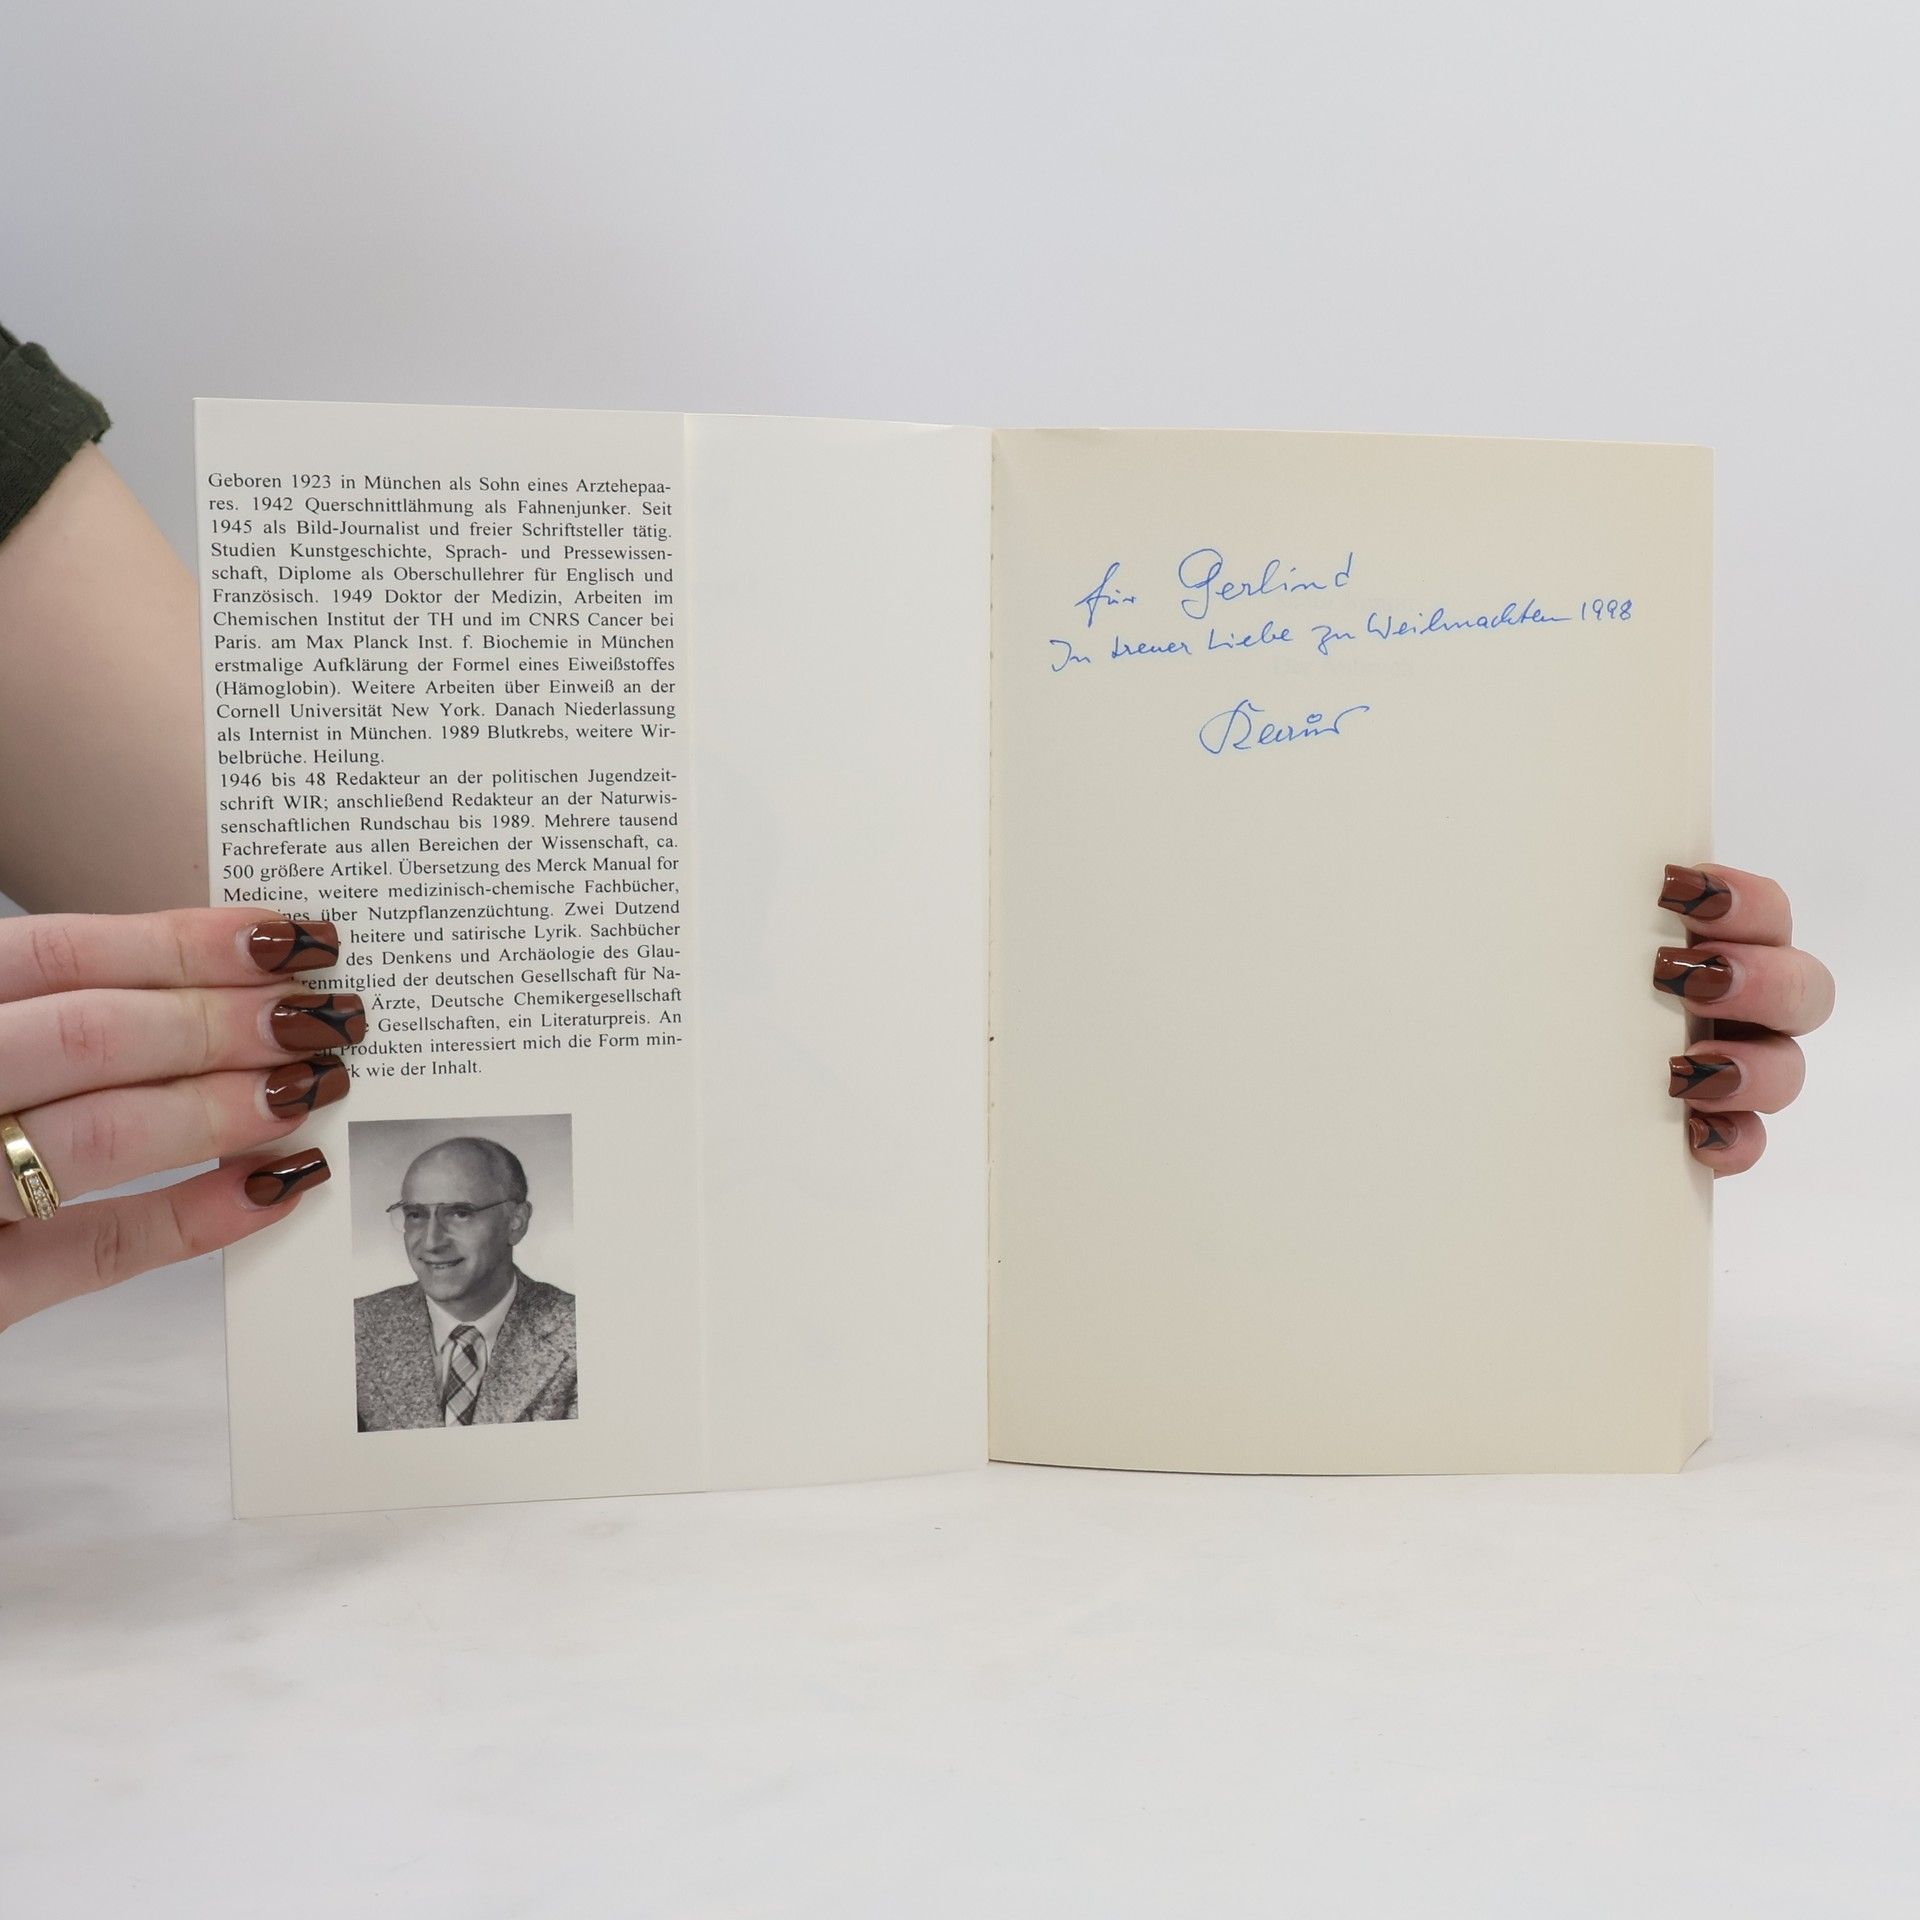 Geboren 1923 in München als Sohn eines Arztehepaa-
res. 1942 Querschnittlähmung als Fahnenjunker. Seit
1945 als Bild-Journalist und freier Schriftsteller tätig.
Studien Kunstgeschichte, Sprach- und Pressewissen-
schaft, Diplome als Oberschullehrer für Englisch und
Französisch. 1949 Doktor der Medizin, Arbeiten im
Chemischen Institut der TH und im CNRS Cancer bei
Paris. am Max Planck Inst. f. Biochemie in München
erstmalige Aufklärung der Formel eines Eiweißstoffes
(Hämoglobin). Weitere Arbeiten über Einweiß an der
Cornell Universität New York. Danach Niederlassung
als Internist in München. 1989 Blutkrebs, weitere Wir-
belbrüche. Heilung.
1946 bis 48 Redakteur an der politischen Jugendzeit-
schrift WIR; anschließend Redakteur an der Naturwis-
senschaftlichen Rundschau bis 1989. Mehrere tausend
Fachreferate aus allen Bereichen der Wissenschaft, ca.
500 größere Artikel. Übersetzung des Merck Manual for
Medicine, weitere medizinisch-chemische Fachbücher,
über Nutzpflanzenzüchtung. Zwei Dutzend
heitere und satirische Lyrik. Sachbücher
des Denkens und Archäologie des Glau-
der deutschen Gesellschaft für Na-
Ärzte, Deutsche Chemikergesellschaft
Gesellschaften, ein Literaturpreis. An
Produkten interessiert mich die Form min-
wie der Inhalt.
für Gerlind
In treuer Liebe zu Weihnachten 1998